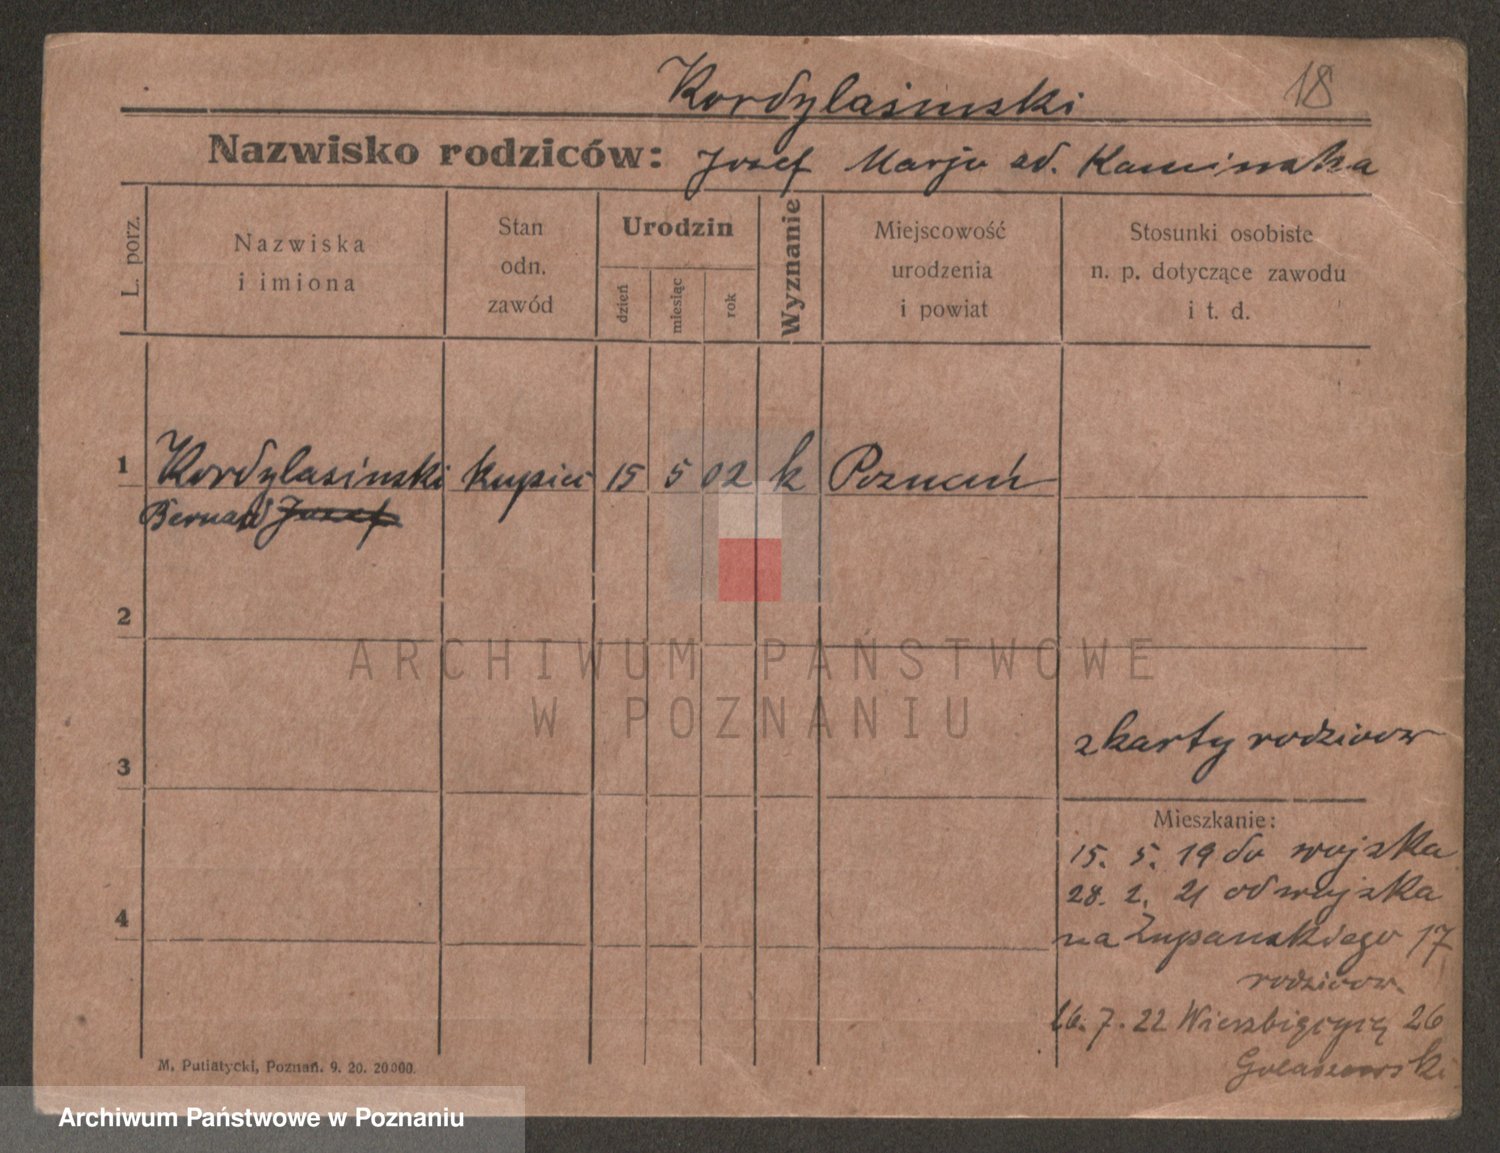 Kordylasinski 18
Nazwisko rodziców: Josef Marja od. Kaminska
L. porz.
Nazwiska
i imiona
Stan
odn.
zawód
Urodzin
dzień
miesiąc
rok
Wyznanie
Miejscowość
urodzenia
i powiat
Stosunki osobiste
n. p. dotyczące zawodu
i t. d.
1 Kordylasinski kupiec 15 5 02 k Poznań
Bernard Josef
2
ARCHIWUM PAŃSTWOWE
W POZNANIU
z karty rodzicow
3
Mieszkanie:
15. 5. 19 do wojska
28. 2. 21 od wojska
4
na Zupanskiego 17
rodzicow.
16. 7. 22 Wierzbięcice 26
M. Putiatycki, Poznań. 9. 20. 20000.
Archiwum Państwowe w Poznaniu